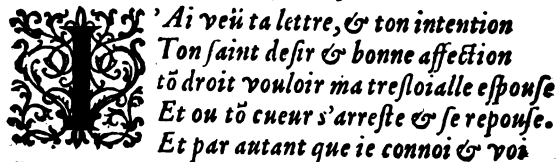 I'Ai veü ta lettre, & ton intention
Ton ſaint deſir & bonne affection
tõ droit vouloir ma treſloialle eſpouſe
Et ou tõ cueur s'arreſte & ſe repouſe.
Et par autant que ie connoi & voi